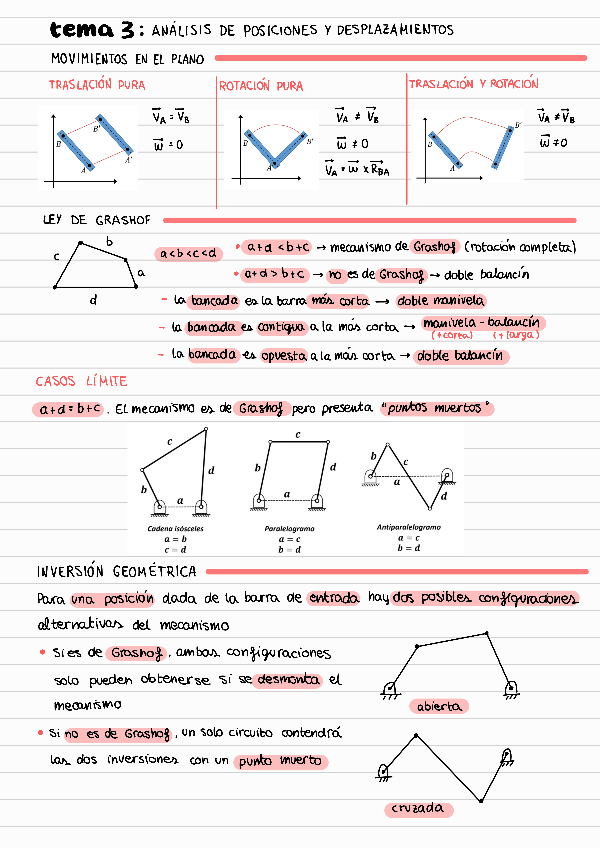 tema 3: ANÁLISIS DE POSICIONES Y DESPLAZAMIENTOS
MOVIMIENTOS EN EL PLANO
TRASLACIÓN PURA
B
B'
A
A'
V_A = V_B
w = 0
ROTACIÓN PURA
B
B'
A
V_A ≠ V_B
w ≠ 0
V_A = w x R_BA
TRASLACIÓN Y ROTACIÓN
B
B'
A
V_A ≠ V_B
w ≠ 0
LEY DE GRASHOF
c
b
a
d
a<b<c<d
• a+d < b+c → mecanismo de Grashof (rotación completa)
• a+d > b+c → no es de Grashof → doble balancín
- la bancada es la barra más corta → doble manivela
- la bancada es contigua a la más corta → manivela - balancín
(+corta) (+larga)
- la bancada es opuesta a la más corta → doble balancín
CASOS LÍMITE
a+d = b+c . El mecanismo es de Grashof pero presenta "puntos muertos"
c
b
d
a
Cadena isósceles
a = b
c = d
c
b
d
a
Paralelogramo
a = c
b = d
b
c
a
d
Antiparalelogramo
a = c
b = d
INVERSIÓN GEOMÉTRICA
Para una posición dada de la barra de entrada hay dos posibles configuraciones
alternativas del mecanismo
• Si es de Grashof, ambas configuraciones
solo pueden obtenerse si se desmonta el
mecanismo
abierta
• Si no es de Grashof, un solo circuito contendrá
las dos inversiones con un punto muerto
cruzada